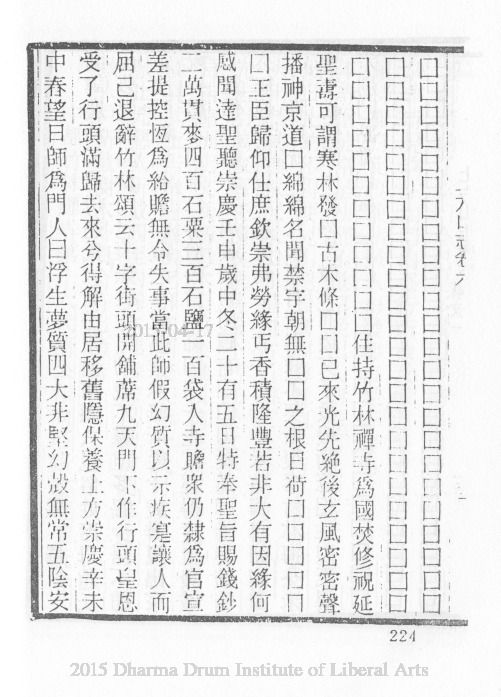 方山志卷
□□□□□□□□□□□□□□□□□□□□□□□□
□□□□□□□□□□□□□□□□□□□□□□□□
□□□□□□□□□□□□□□□□□□□□□□□□
□□□□□□□□□□□□住持竹林禪寺爲國焚修祝延
聖壽可謂寒林發□古木條□□已來光先絶後玄風密密聲
播神京道□綿綿名聞禁宇朝無□□之根日荷□□□□
□王臣歸仰仕庶欽崇弗勞緣丐香積隆豐若非大有因緣何
感聞達聖聽崇慶壬申歲中冬二十有五日特奉聖旨賜錢鈔
二萬貫麥四百石粟三百石鹽一百袋入寺贍衆仍隸爲官宣
差提控恆爲給贍無令失事當此師假幻質以示疾寔讓人而
屈己退辭竹林頌云十字街頭開舖席九天門下作行頭皇恩
受了行頭滿歸去來兮得解由居移舊隱保養上方崇慶辛未
中春望日師爲門人曰浮生夢質四大非堅幻殼無常五陰安
224
2015 Dharma Drum Institute of Liberal Arts